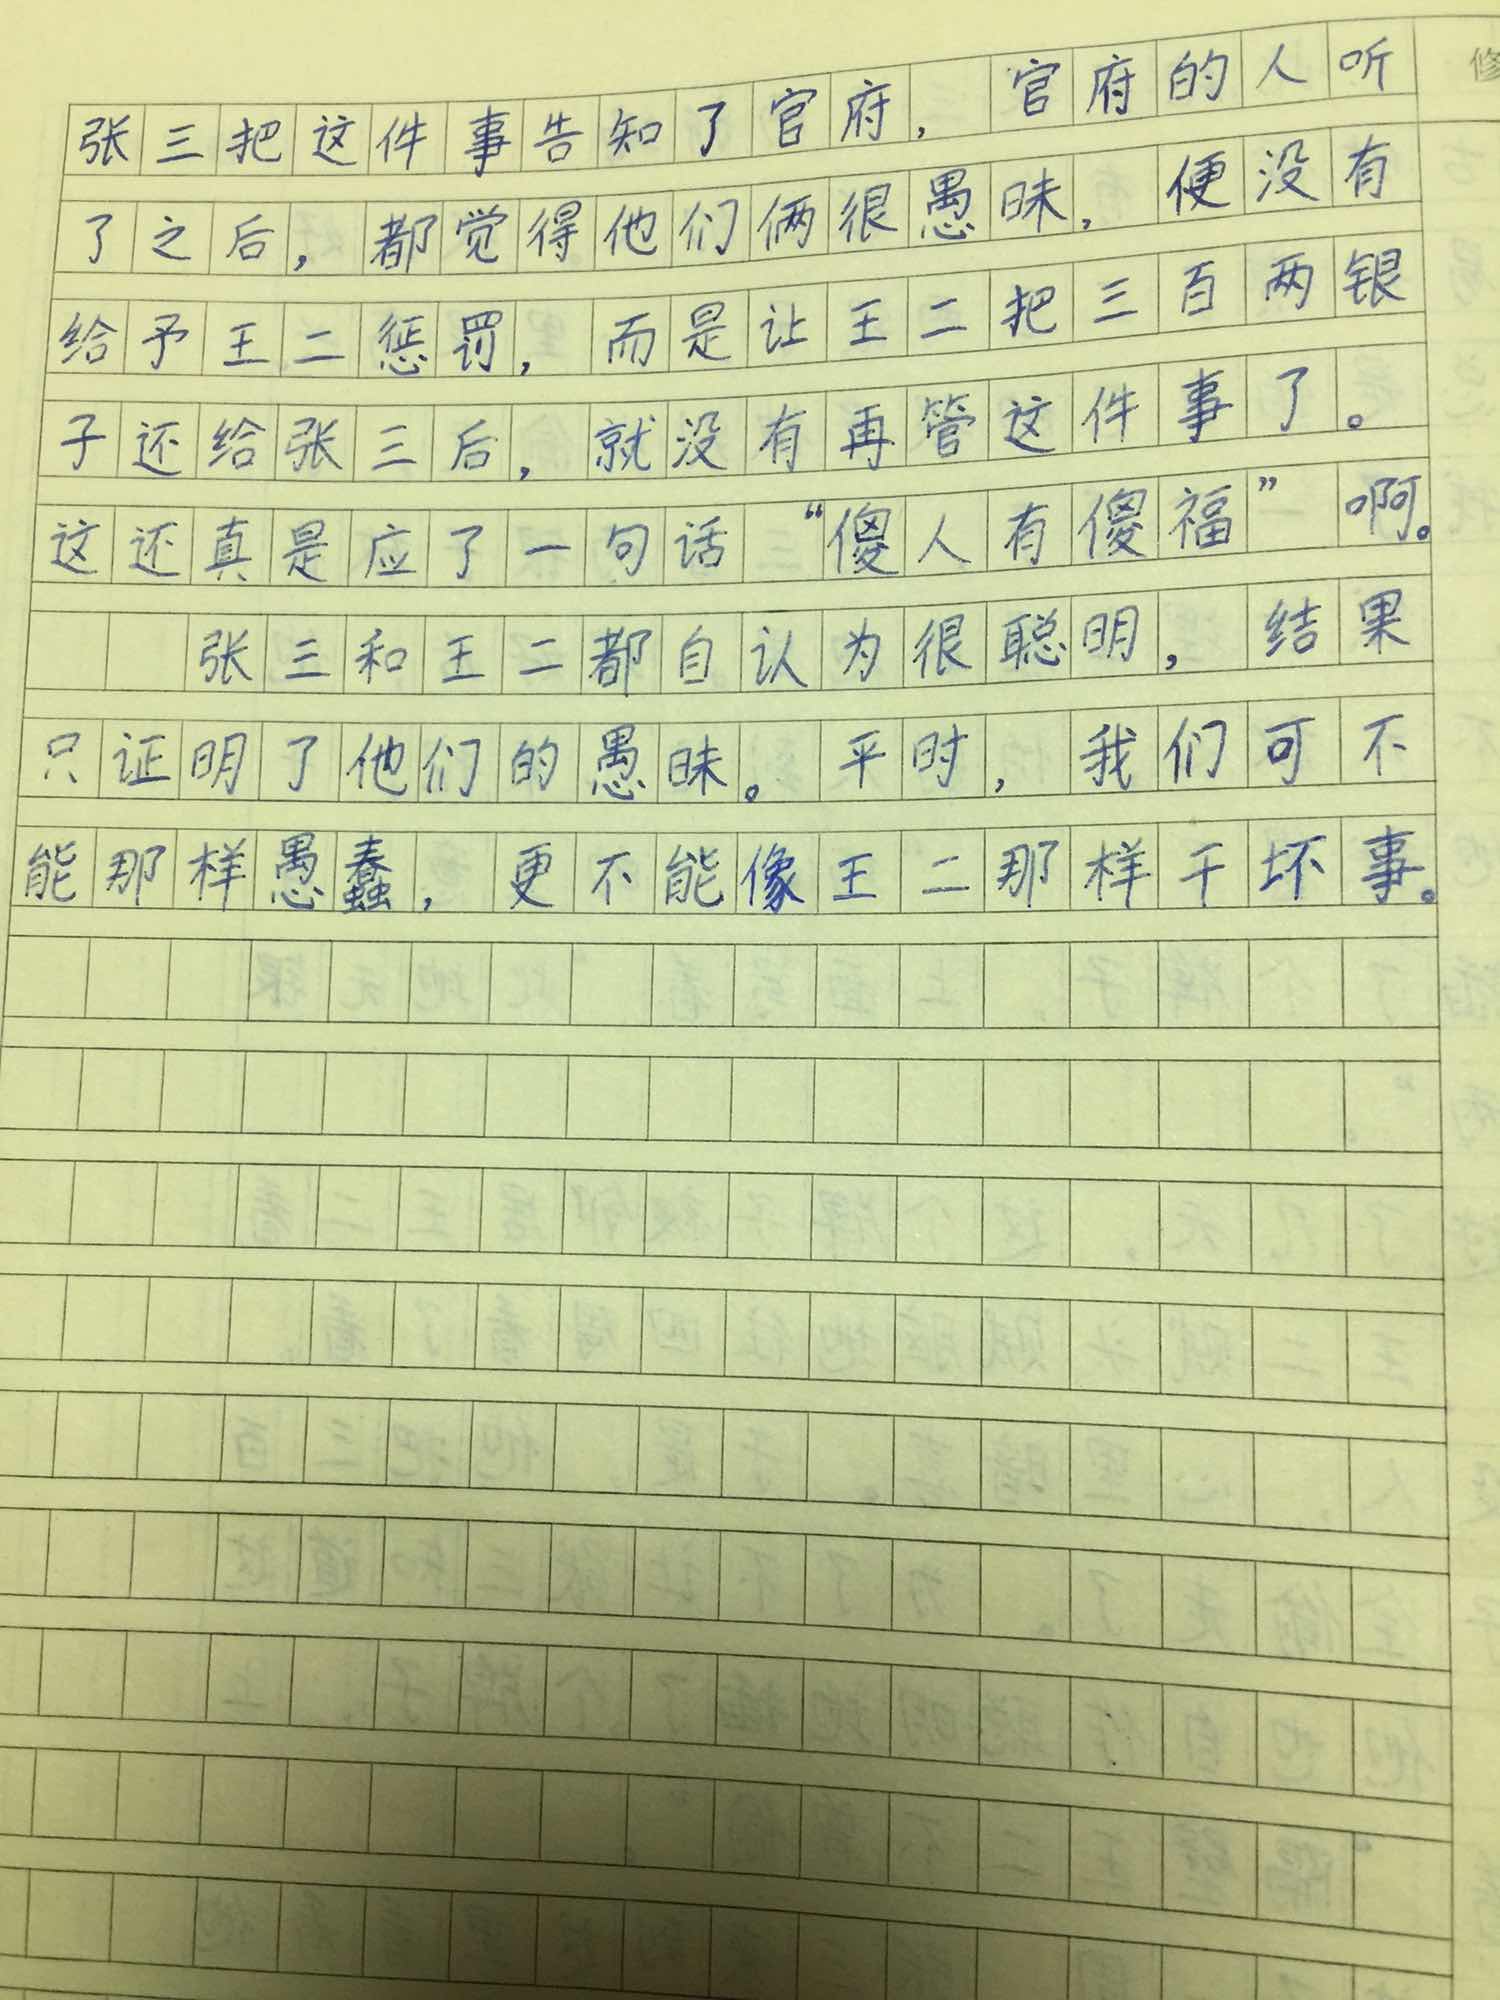 张三把这件事告知了官府，官府的人听
了之后，都觉得他们俩很愚昧，便没有
给予王二惩罚，而是让王二把三百两银
子还给张三后，就没有再管这件事了。
这还真是应了一句话“傻人有傻福”啊。
张三和王二都自认为很聪明，结果
只证明了他们的愚昧。平时，我们可不
能那样愚蠢，更不能像王二那样干坏事。